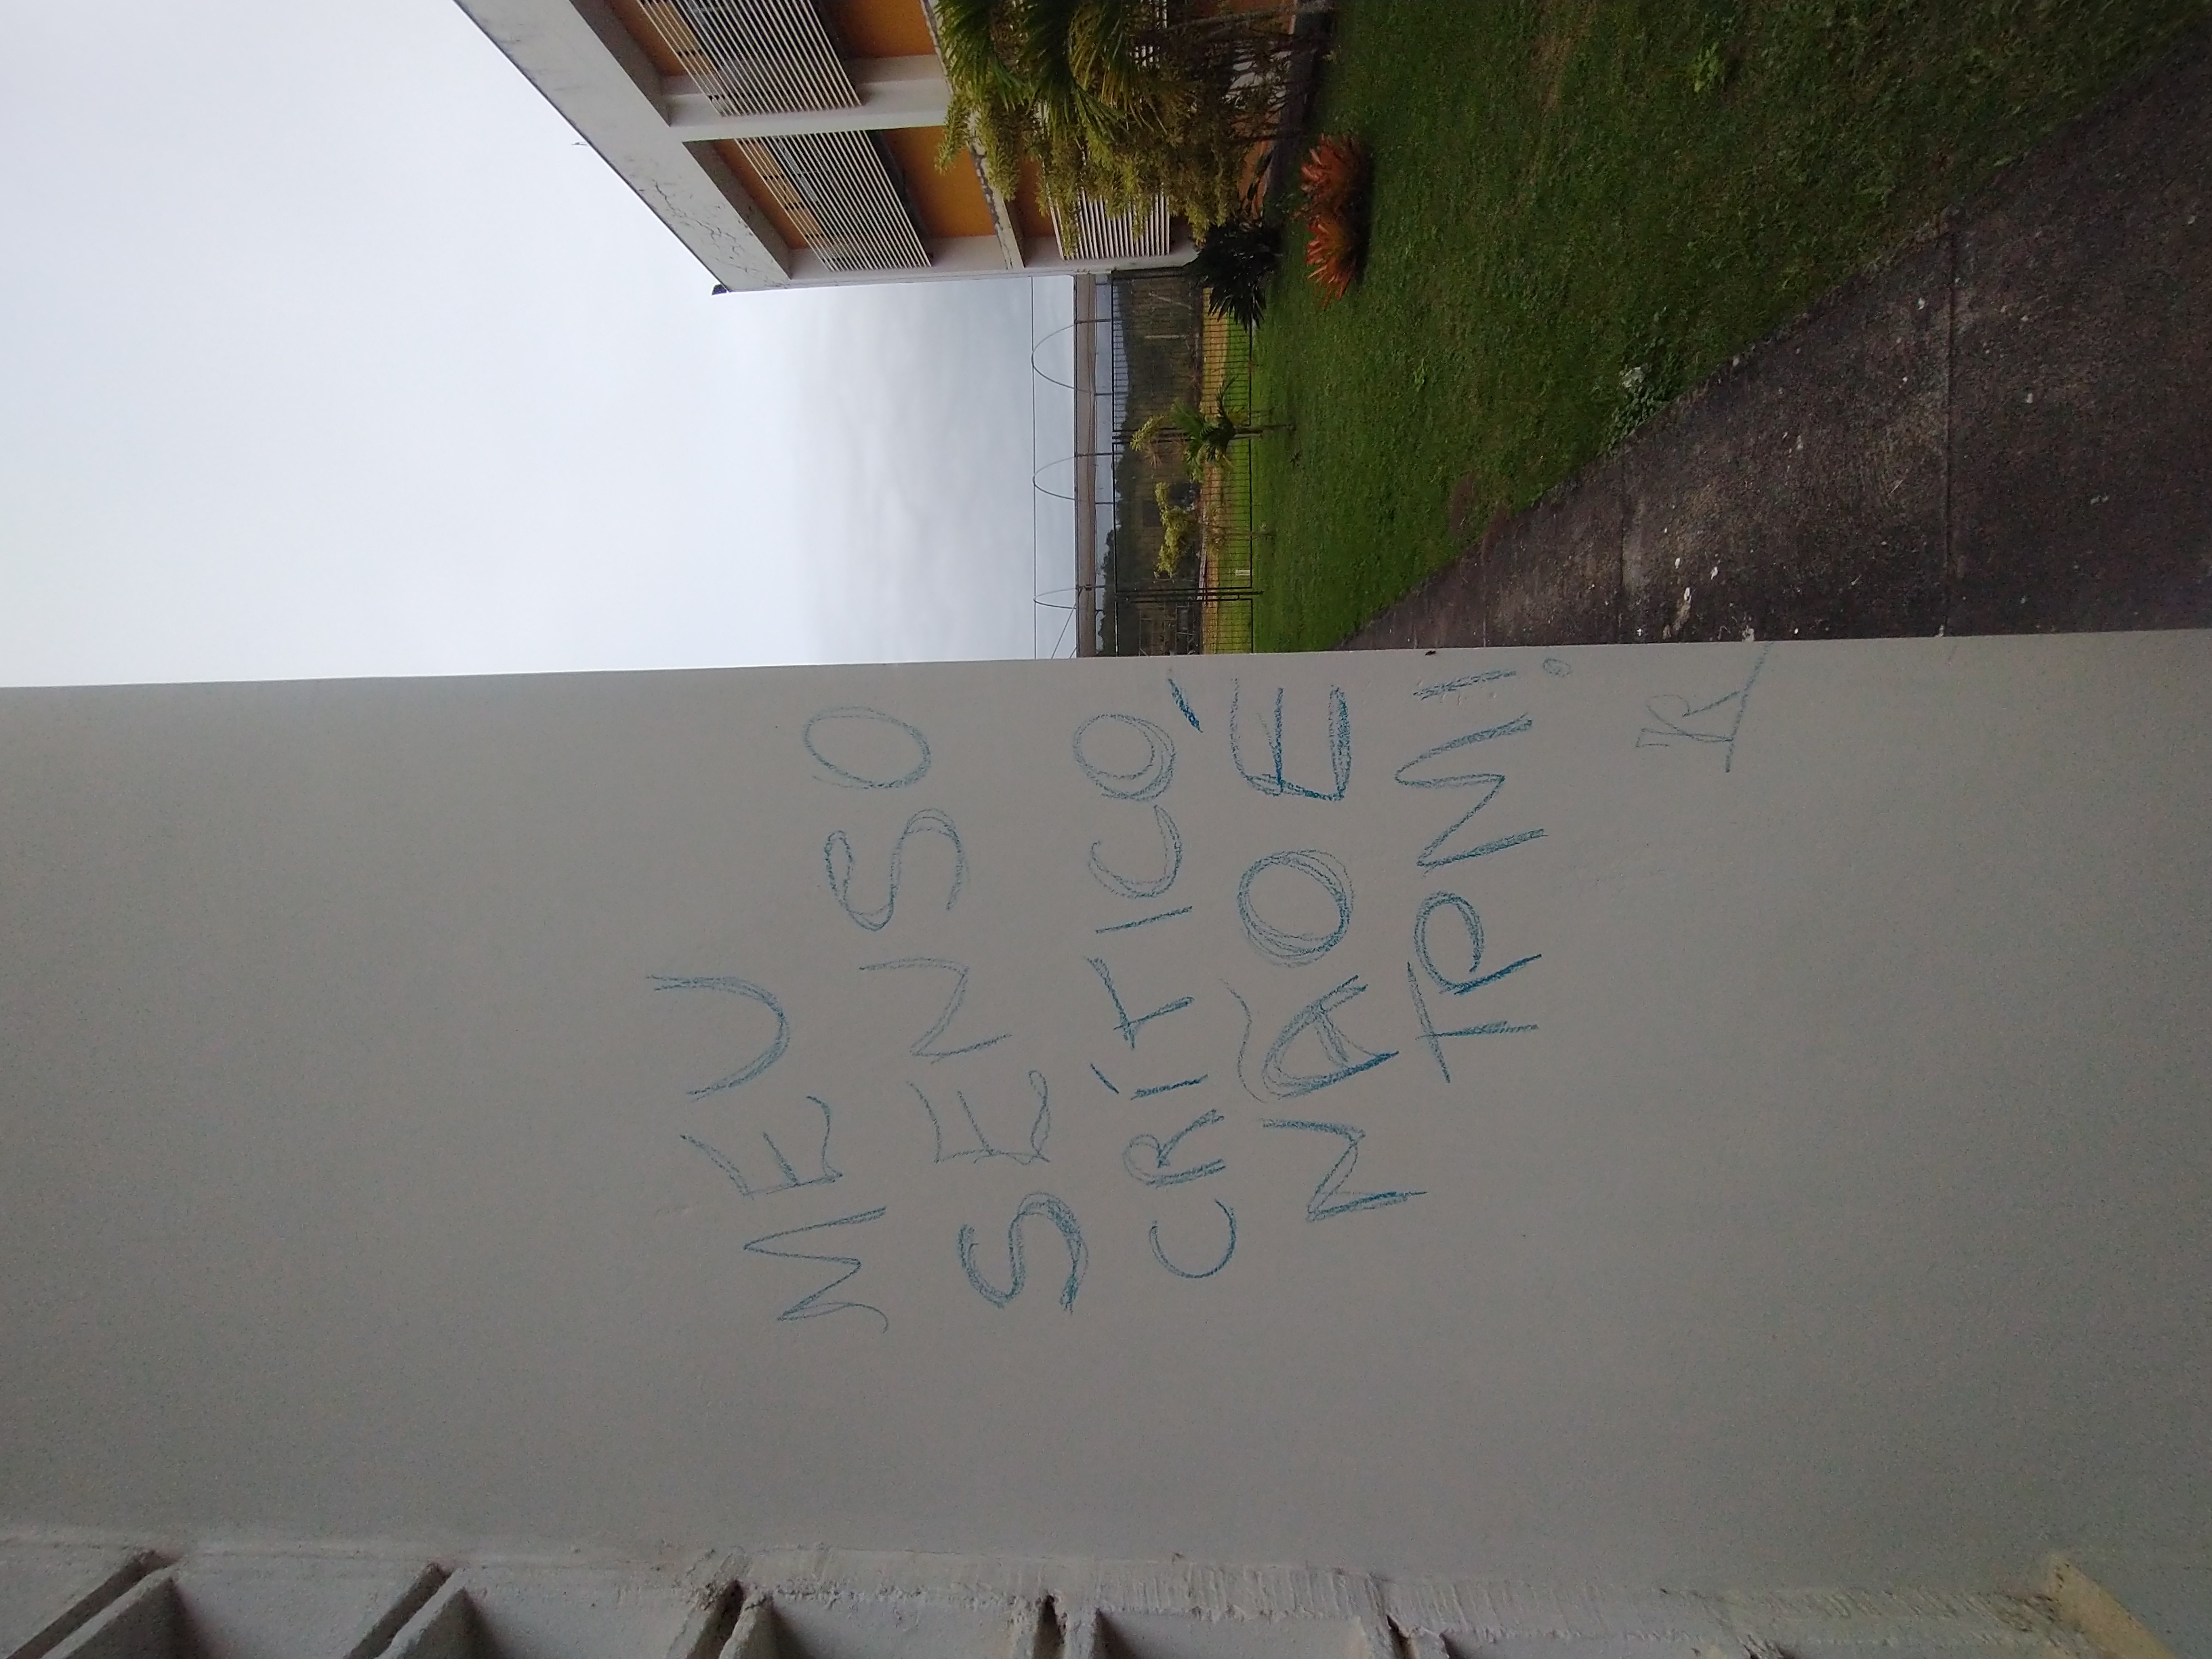 MEU
SENSO
CRÍTICO
NÃO É
TPM!